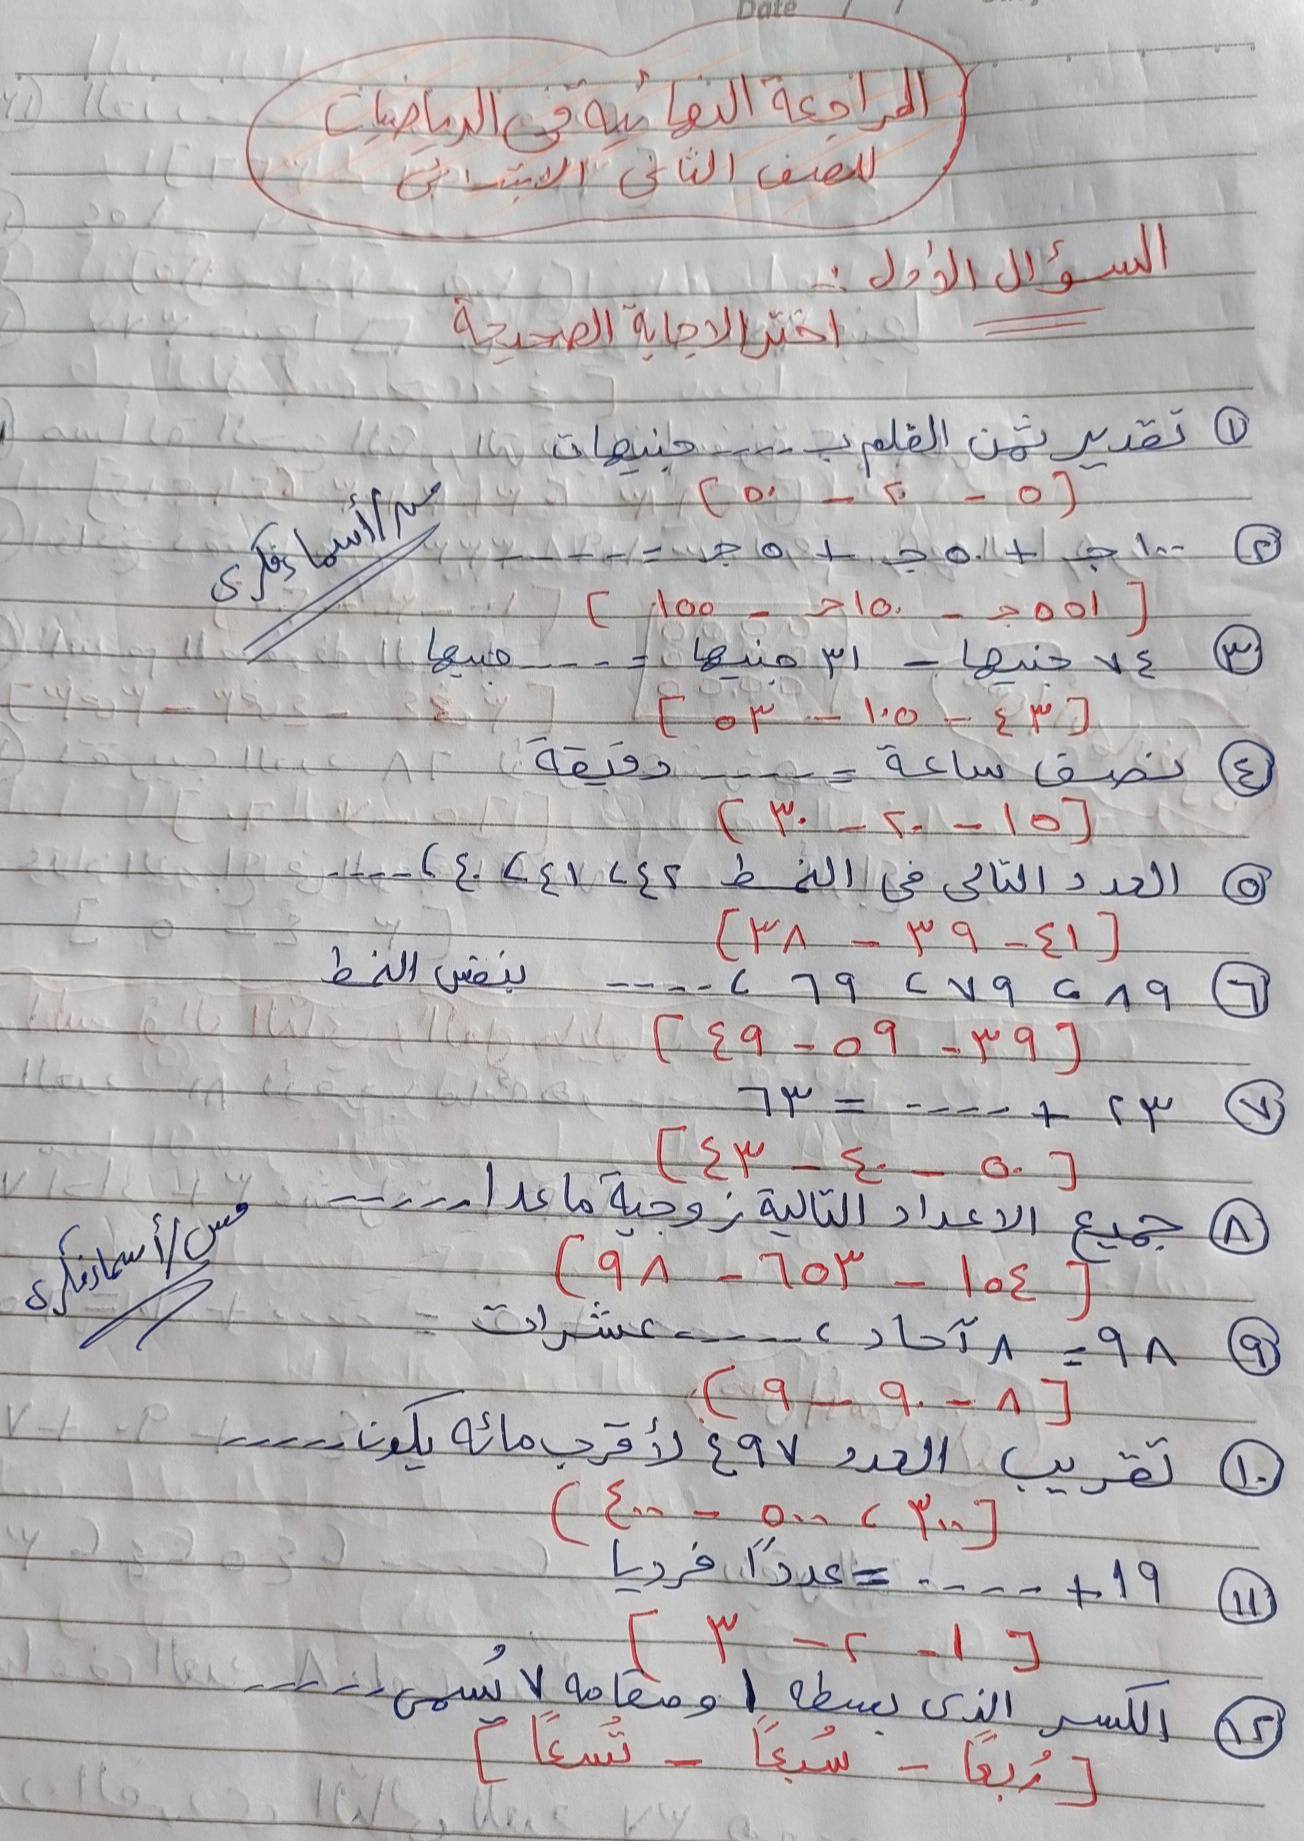 Date / /
المراجعة النهائية فى الرياضيات
للصف الثانى الابتدائى
السؤال الأول :-
اختر الاجابة الصحيحة
① تقدير ثمن القلم بـ ---- جنيهات
[ ٥ - ٢٠ - ٥٠ ]
مس/أسماء فكرى
② ١٠٠ جـ + ٥٠ جـ + ٥ جـ = -----
[ ٥٥١ جـ - ١٥٠ جـ - ١٥٥ ]
③ ٧٤ جنيها - ٣١ جنيها = ---- جنيها
[ ٤٣ - ١٠٥ - ٥٣ ]
④ نصف ساعة = ---- دقيقة
[ ١٥ - ٢٠ - ٣٠ ]
⑤ العدد التالى فى النمط ٤٢ ، ٤١ ، ٤٠ ، ----
[ ٤١ - ٣٩ - ٣٨ ]
⑥ ٨٩ ، ٧٩ ، ٦٩ ، ---- بنفس النمط
[ ٣٩ - ٥٩ - ٤٩ ]
⑦ ٢٣ + ---- = ٦٣
[ ٥٠ - ٤٠ - ٤٣ ]
⑧ جميع الاعداد التالية زوجية ما عدا ------
[ ١٠٤ - ٦٥٣ - ٩٨ ]
مس/أسماء فكرى
⑨ ٩٨ = ٨ آحاد ، ---- عشرات
[ ٨ - ٩٠ - ٩ ]
⑩ تقريب العدد ٤٩٧ لأقرب مائه يكون -----
[ ٣٠٠ ، ٥٠٠ - ٤٠٠ ]
⑪ ١٩ + ---- = عددًا فرديا
[ ١ - ٢ - ٣ ]
⑫ الكسر الذى بسطه ١ ومقامه ٧ يُسمى ------
[ رُبعًا - سُبعًا - تُسعًا ]